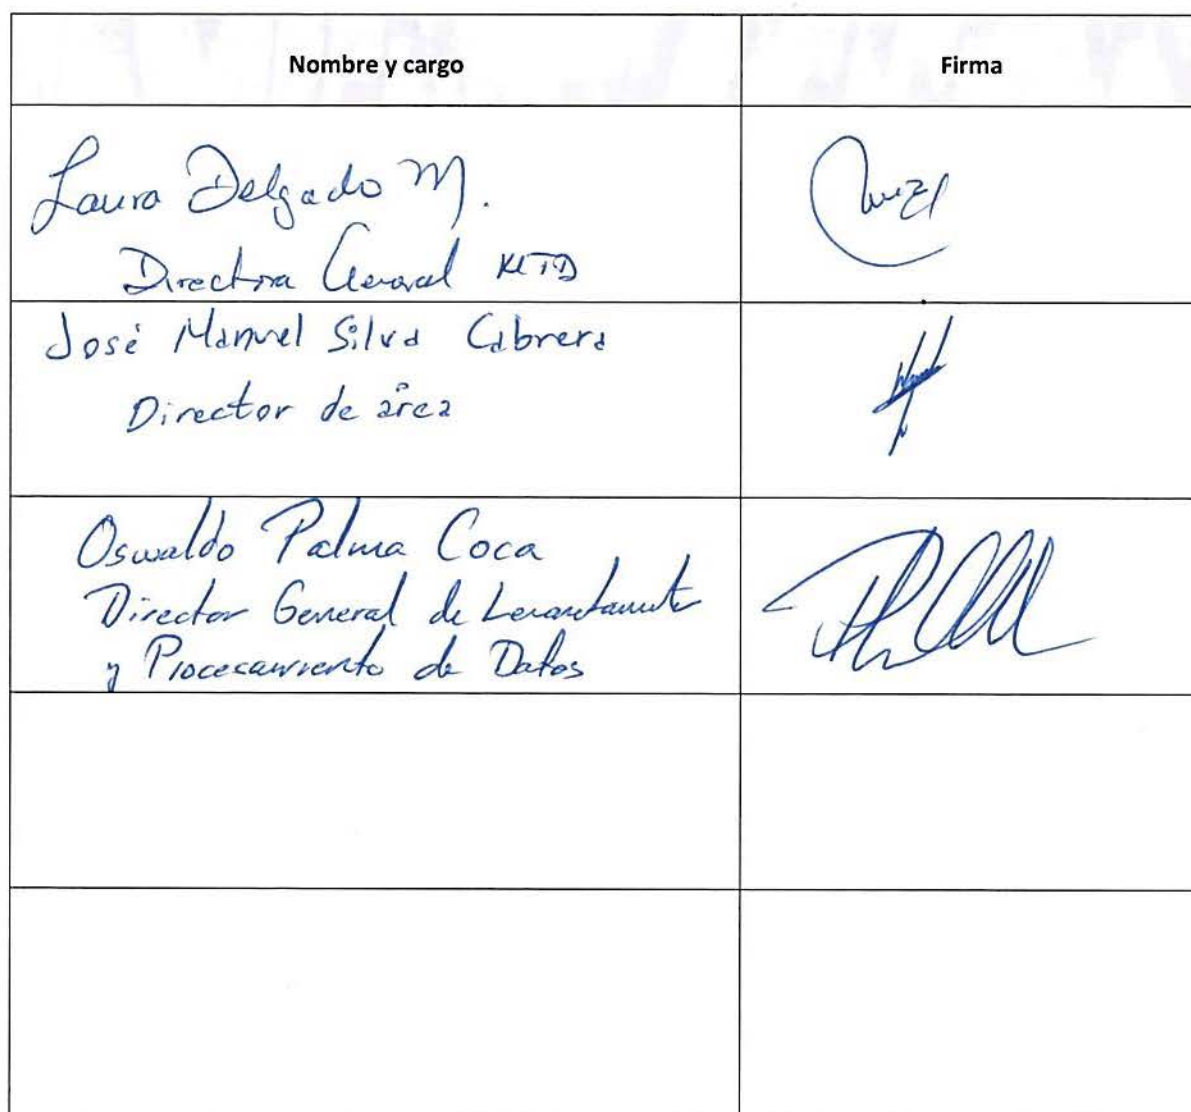 Nombre y cargo
Firma
Laura Delgado M.
Directora General
José Manuel Silva Cabrera
Director de área
Oswaldo Palma Coca
Director General de Levantamiento
y Procesamiento de Datos